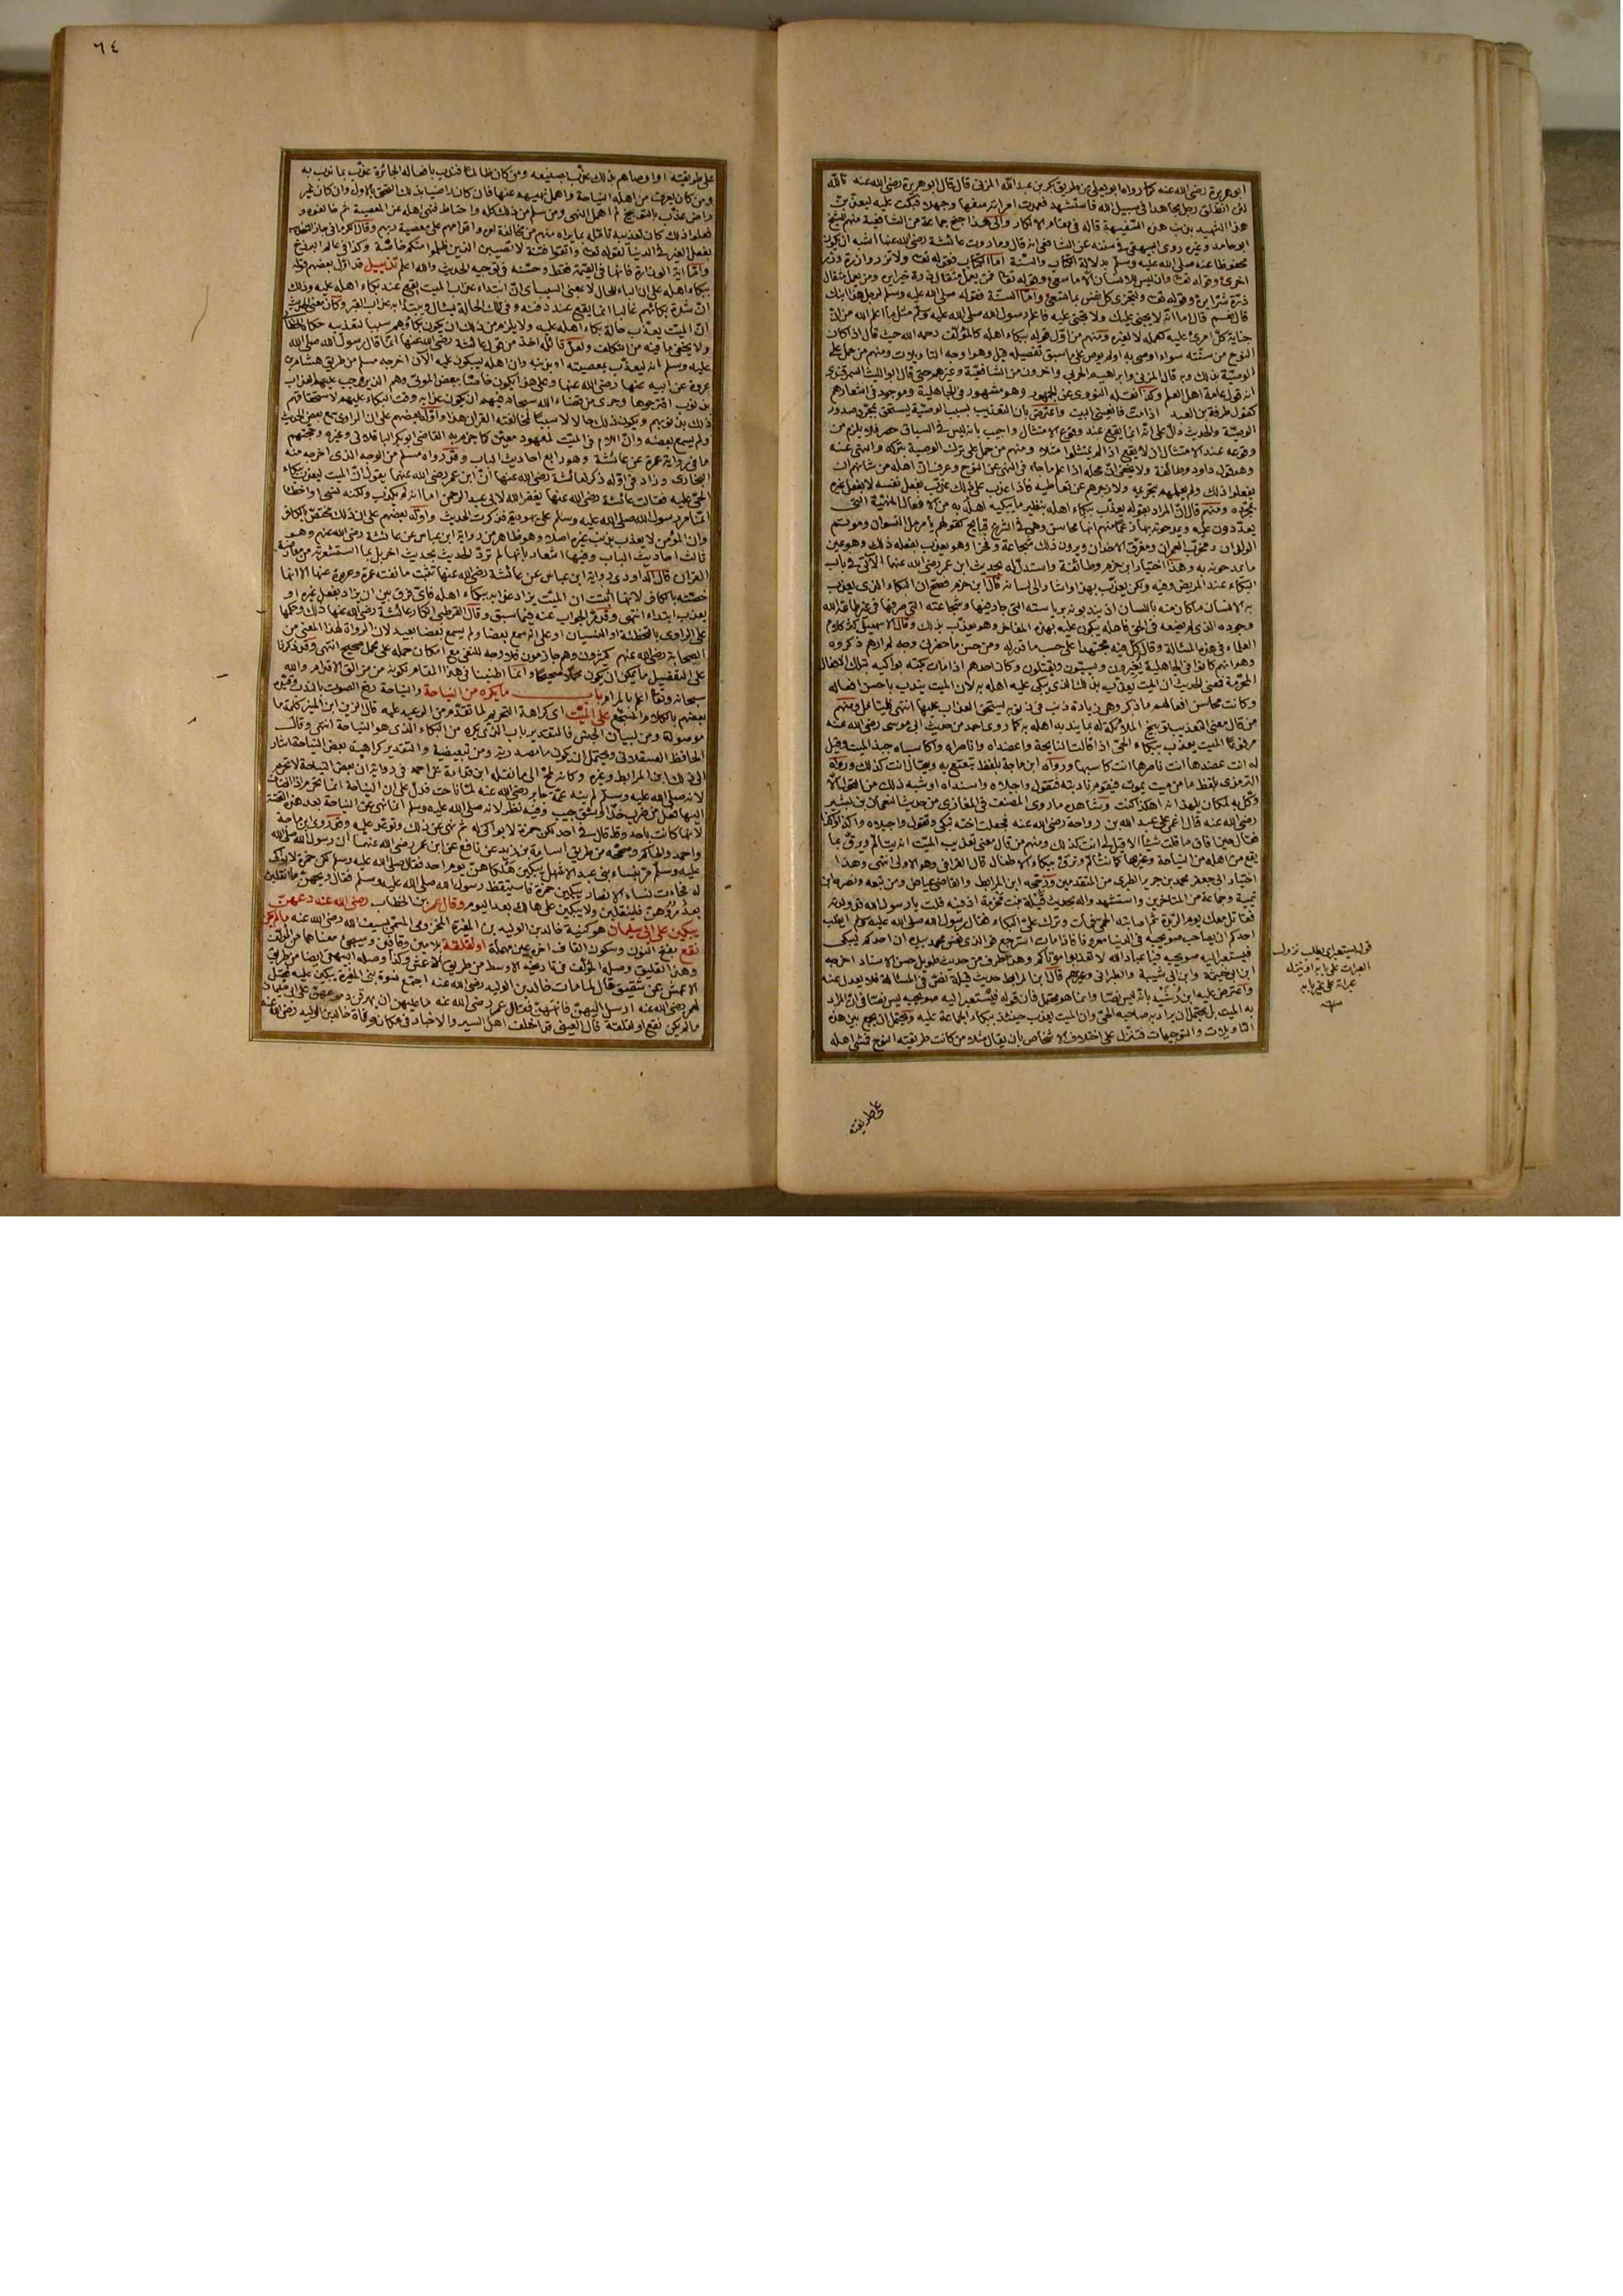 ابو هريرة رضي الله عنه كما رواه ابو يعلى من طريق بكر بن عبد الله المزني قال قال ابو هريرة رضي الله عنه تالله
لئن انطلق رجل مجاهدا في سبيل الله فاستشهد فعمدت امرأته سفها وجهلا فبكت عليه ليعذبن
هذا الشهيد بذنب هذه السفيهة قاله في مقام الانكار والى هذا جنح جماعة من الشافعية منهم الشيخ
ابو حامد وغيره روى البيهقي في سننه عن الشافعي انه قال وما روت عائشة رضي الله عنها اشبه ان يكون
محفوظا عنه صلى الله عليه وسلم بدلالة الكتاب والسنة اما الكتاب فقوله تعالى ولا تزر وازرة وزر
اخرى وقوله تعالى وان ليس للانسان الا ما سعى وقوله تعالى فمن يعمل مثقال ذرة خيرا يره ومن يعمل مثقال
ذرة شرا يره وقوله تعالى ولتجزى كل نفس بما تسعى واما السنة فقوله صلى الله عليه وسلم لرجل هذا ابنك
قال نعم قال اما انه لا يجني عليك ولا تجني عليه فاعلم رسول الله صلى الله عليه وسلم مثل ما اعلم الله من ان
جناية كل امرئ عليه كعمله لا لغيره ومنهم من اول قوله ببكاء اهله كالمؤلف رحمه الله حيث قال اذا كان
النوح من سنته سواء اوصى به او لم يوص على ما سبق تفصيله قبل وهو اوجه التاويلات ومنهم من حمل على
الوصية بذلك وبه قال المزني وابراهيم الحربي واخرون من الشافعية وغيرهم حتى قال ابو الليث السمرقندي
انه قول عامة اهل العلم وكذا نقله النووي عن الجمهور وهو مشهور في الجاهلية وموجود في اشعارهم
كقول طرفة بن العبد اذا مت فانعيني البيت واعترض بان التعذيب بسبب الوصية يستحق بمجرد صدور
الوصية والحديث دل على انه انما يقع عند وقوع الامتثال واجيب بانه ليس في السياق حصر فلا يلزم من
وقوعه عند الامتثال ان لا يقع اذا لم يمتثلوا مثلا ومنهم من حمل على ترك الوصية بتركه والنهي عنه
وهو قول داود وطائفة ولا يخفى ان محله اذا علم ما جاء في النهي عن النوح وعرف ان اهله من شانهم ان
يفعلوا ذلك ولم يعلمهم بتحريمه ولا زجرهم عن تعاطيه فاذا عذب على ذلك عذب بفعل نفسه لا بفعل غيره
بمجرده ومنهم قال ان المراد بقوله يعذب ببكاء اهله بنظير ما يبكيه اهله به من الافعال المنهية التي
يعددون عليه ويمدحونه بها ذعما منهم انها محاسن وهي في الشرع قبايح كقولهم يا مرمل النسوان وموتم
الولدان ومخرب العمران ومفرق الاخدان ويرون ذلك شجاعة وفخرا وهو يعذب بفعله ذلك وهو عين
ما يمدحونه به وهذا اختيار ابن حزم وطائفة واستدل له بحديث ابن عمر رضي الله عنهما الآتي في باب
البكاء عند المريض وفيه ولكن يعذب بهذا واشار الى لسانه قال ابن حزم فصح ان البكاء الذي يعذب
به الانسان ما كان منه باللسان اذ يندبونه برياسته التي جار فيها وشجاعته التي صرفها في غير طاعة الله
وجوده الذي لم يضعه في الحق فاهله يبكون عليه بهذه المفاخر وهو يعذب بذلك وقال الاسمعيلي كثر كلام
العلماء في هذه المسئلة وقال كل فيه مجتهدا على حسب ما قدر له ومن حسن ما حضرني وجه لم ارهم ذكروه
وهو انهم كانوا في الجاهلية يغيرون ويسبون ويقتلون وكان احدهم اذا مات بكته بواكيه بتلك الافعال
المحرمة فمعنى الحديث ان الميت يعذب بذلك الذي يبكي عليه اهله به لان الميت يندب باحسن افعاله
وكانت محاسن افعالهم ما ذكر وهي زيادة ذنب في ذنوبه يستحق العذاب عليها انتهى فليتامل ومنهم
من قال معنى التعذيب توبيخ الملائكة له بما يندبه اهله به كما روى احمد من حديث ابي موسى رضي الله عنه
مرفوعا الميت يعذب ببكاء الحي اذا قالت النايحة واعضداه واناصراه واكاسياه جبذ الميت وقيل
له انت عضدها انت ناصرها انت كاسيها ورواه ابن ماجة بلفظ يتعتع به ويقال انت كذلك ورواه
الترمذي بلفظ ما من ميت يموت فيقوم نادبته فتقول واجبلاه واسنداه او شبه ذلك من القول الا
وكل به ملكان يلهذانه اهكذا كنت وشاهده ما روى المصنف في المغازي من حديث النعمان بن بشير
رضي الله عنه قال اغمي على عبد الله بن رواحة رضي الله عنه فجعلت اخته تبكي وتقول واجبلاه واكذا واكذا
فقال حين افاق ما قلت شيئا الا قيل لي انت كذلك ومنهم من قال معنى تعذيب الميت انه يتالم ويرق بما
يقع من اهله من النياحة وغيرها كما يتالم ويرق ببكاء الاطفال قال القرافي وهو الاولى انتهى وهذا
اختيار ابي جعفر محمد بن جرير الطبري من المتقدمين ورجحه ابن المرابط والقاضي عياض ومن تبعه ونصره ابن
تيمية وجماعة من المتاخرين واستشهدوا له بحديث قيلة بنت مخرمة اذ فيه قلت يا رسول الله قد ولدته
فقاتل معك يوم الربذة ثم اصابته الحمى فمات وترك علي البكاء فقال رسول الله صلى الله عليه وسلم ايغلب
احدكم ان يصاحب صويحبه في الدنيا معروفا فاذا مات استرجع فوالذي نفس محمد بيده ان احدكم ليبكي
فيستعبر اليه صويحبه فيا عباد الله لا تعذبوا موتاكم وهذا طرف من حديث طويل حسن الاسناد اخرجه
ابن ابي خيثمة وابن ابي شيبة والطبراني وغيرهم قال ابن المرابط حديث قيلة نص في المسئلة فلا يعدل عنه
واعترض عليه ابن رشيد بانه ليس نصا وانما هو محتمل فان قوله فيستعبر اليه صويحبه ليس نصا في ان المراد
به الميت بل يحتمل ان يراد به صاحبه الحي وان الميت يعذب حينئذ ببكاء الجماعة عليه ويحتمل ان يجمع بين هذه
التاويلات والتوجيهات فتنزل على اختلاف الاشخاص بان يقال مثلا من كانت طريقته النوح فمشى اهله
على طريقته
٦٤
على طريقته او اوصاهم بذلك عذب بصنيعه ومن كان ظالما فندب بافعاله الجائرة عذب بما ندب به
ومن كان يعرف من اهله النياحة واهمل نهيهم عنها فان كان راضيا بذلك التحق بالاول وان كان غير
راض عذب بالتوبيخ لم اهمل النهي ومن سلم من ذلك كله واحتاط فنهى اهله عن المعصية ثم خالفوه و
فعلوا ذلك كان تعذيبه تالمه بما يراه منهم من مخالفة امره واقدامهم على معصية ربهم وقال الكرماني جاز التعذيب
بفعل الغير في الدنيا لقوله تعالى واتقوا فتنة لا تصيبن الذين ظلموا منكم خاصة وكذا في عالم البرزخ
واما اية الوازرة فانها في القيمة فقط وحسنه في توجيه الحديث والله اعلم تذييل قد اول بعضهم قوله
ببكاء اهله على ان الباء للحال لا بمعنى السبب اي ان ابتداء عذاب الميت يقع عند بكاء اهله عليه وذلك
ان شدة بكائهم غالبا انما يقع عند دفنه وفي تلك الحالة يسئل ويبتدأ به عذاب القبر وكان معنى الحديث
ان الميت يعذب حالة بكاء اهله عليه ولا يلزم من ذلك ان يكون بكاؤهم سببا لتعذيبه حكاه الخطابي
ولا يخفى ما فيه من التكلف ولعل قائله اخذ من قول عائشة رضي الله عنها انما قال رسول الله صلى الله
عليه وسلم انه ليعذب بمعصيته او بذنبه وان اهله ليبكون عليه الآن اخرجه مسلم من طريق هشام بن
عروة عن ابيه عنها رضي الله عنها وعلى هذا يكون خاصا ببعض الموتى وهم الذين وجب عليهم العذاب
بذنوب اقترحوها وجرى من قضاء الله سبحانه فيهم ان يكون عذابه وقت البكاء عليهم لاستحقاقهم
ذلك بذنوبهم ويكون ذلك حالا لا سببا لمخالفته القران هذا واوله بعضهم على ان الراوي سمع بعض الحديث
ولم يسمع بعضه وان اللام في الميت لمعهود معين كما جزم به القاضي ابو بكر الباقلاني وغيره وحجتهم
ما في رواية عمرة عن عائشة وهو رابع احاديث الباب وقد رواه مسلم من الوجه الذي اخرجه منه
البخاري وزاد في اوله ذكر لعائشة رضي الله عنها ان ابن عمر رضي الله عنهما يقول ان الميت ليعذب ببكاء
الحي عليه فقالت عائشة رضي الله عنها يغفر الله لابي عبد الرحمن اما انه لم يكذب ولكنه نسي او اخطأ
انما مر رسول الله صلى الله عليه وسلم على يهودية فذكرت الحديث واوله بعضهم على ان ذلك مختص بالكافر
وان المؤمن لا يعذب بذنب غيره اصلا وهو ظاهر من رواية ابن عباس عن عائشة رضي الله عنهم وهو
ثالث احاديث الباب وفيها اشعار بانها لم ترد الحديث بحديث اخر بل بما استشعرته من معارضة
القران قال الداودي رواية ابن عباس عن عائشة رضي الله عنها تثبت ما نفته عمرة وعروة عنها الا انها
خصته بالكافر لانها اثبتت ان الميت يزداد عذابه ببكاء اهله فاي فرق بين ان يزاد بفعل غيره او
يعذب ابتداء انتهى وقد مر الجواب عنه فيما سبق وقال القرطبي انكار عائشة رضي الله عنها ذلك وحكمها
على الراوي بالتخطئة او النسيان او على انه سمع بعضا ولم يسمع بعضا بعيد لان الرواة لهذا المعنى من
الصحابة رضي الله عنهم كثيرون وهم جازمون فلا وجه للنفي مع امكان حمله على محمل صحيح انتهى وقد ذكرنا
على التفصيل ما يمكن ان يكون محملا صحيحا وانما اطنبنا في هذا المقام لكونه من مزالق الاقدام والله
سبحانه وتعالى اعلم بالمرام باب ما يكره من النياحة والنياحة رفع الصوت بالندب وقيده
بعضهم بالكلام المسجع على الميت اي كراهة التحريم لما تقدم من الوعيد عليه قال الزين ابن المنير كلمة ما
موصولة ومن لبيان الجنس فالتقدير باب الذي يكره من البكاء الذي هو النياحة انتهى وقال
الحافظ العسقلاني ويحتمل ان يكون ما مصدرية ومن تبعيضية والتقدير كراهية بعض النياحة اشار
الى ذلك ابن المرابط وغيره وكانه لمح الى ما نقله ابن قدامة عن احمد في رواية ان بعض النياحة لا تحرم
لانه صلى الله عليه وسلم لم ينه عمة جابر رضي الله عنه لما ناحت فدل على ان النياحة انما تحرم اذا انضاف
اليها فعل من ضرب خد او شق جيب وفيه نظر لانه صلى الله عليه وسلم انما نهى عن النياحة بعد هذه القصة
لانها كانت باحد وقد قال في احد لكن حمزة لا بواكي له ثم نهى عن ذلك وتوعد عليه وقد روى ابن ماجة
واحمد والحاكم وصححه من طريق اسامة بن زيد عن نافع عن ابن عمر رضي الله عنهما ان رسول الله صلى الله
عليه وسلم مر بنساء بني عبد الاشهل يبكين هلكاهن يوم احد فقال صلى الله عليه وسلم لكن حمزة لا بواكي
له فجاءت نساء الانصار يبكين حمزة فاستيقظ رسول الله صلى الله عليه وسلم فقال ويحهن ما انقلبن
بعد مروهن فلينقلبن ولا يبكين على هالك بعد اليوم وقال عمر بن الخطاب رضي الله عنه دعهن
يبكين على ابي سليمان هو كنية خالد بن الوليد بن المغيرة المخزومي المسمى بسيف الله رضي الله عنه ما لم يكن
نقع بفتح النون وسكون القاف اخره عين مهملة او لقلقة بلامين وقافين وسيجئ معناهما من المؤلف
وهذا التعليق وصله المؤلف في تاريخه الاوسط من طريق الاعمش وكذا وصله البيهقي ايضا من طريق
الاعمش عن شقيق قال لما مات خالد بن الوليد رضي الله عنه اجتمع نسوة بني المغيرة يبكين عليه فقيل
لعمر رضي الله عنه ارسل اليهن فانههن فقال عمر رضي الله عنه ما عليهن ان يهرقن دموعهن على ابي سليمان
ما لم يكن نقع او لقلقة قال العيني قد اختلف اهل السير والاخبار في مكان وفاة خالد بن الوليد رضي الله عنه
قوله فيستعبر اي يطلب نزول